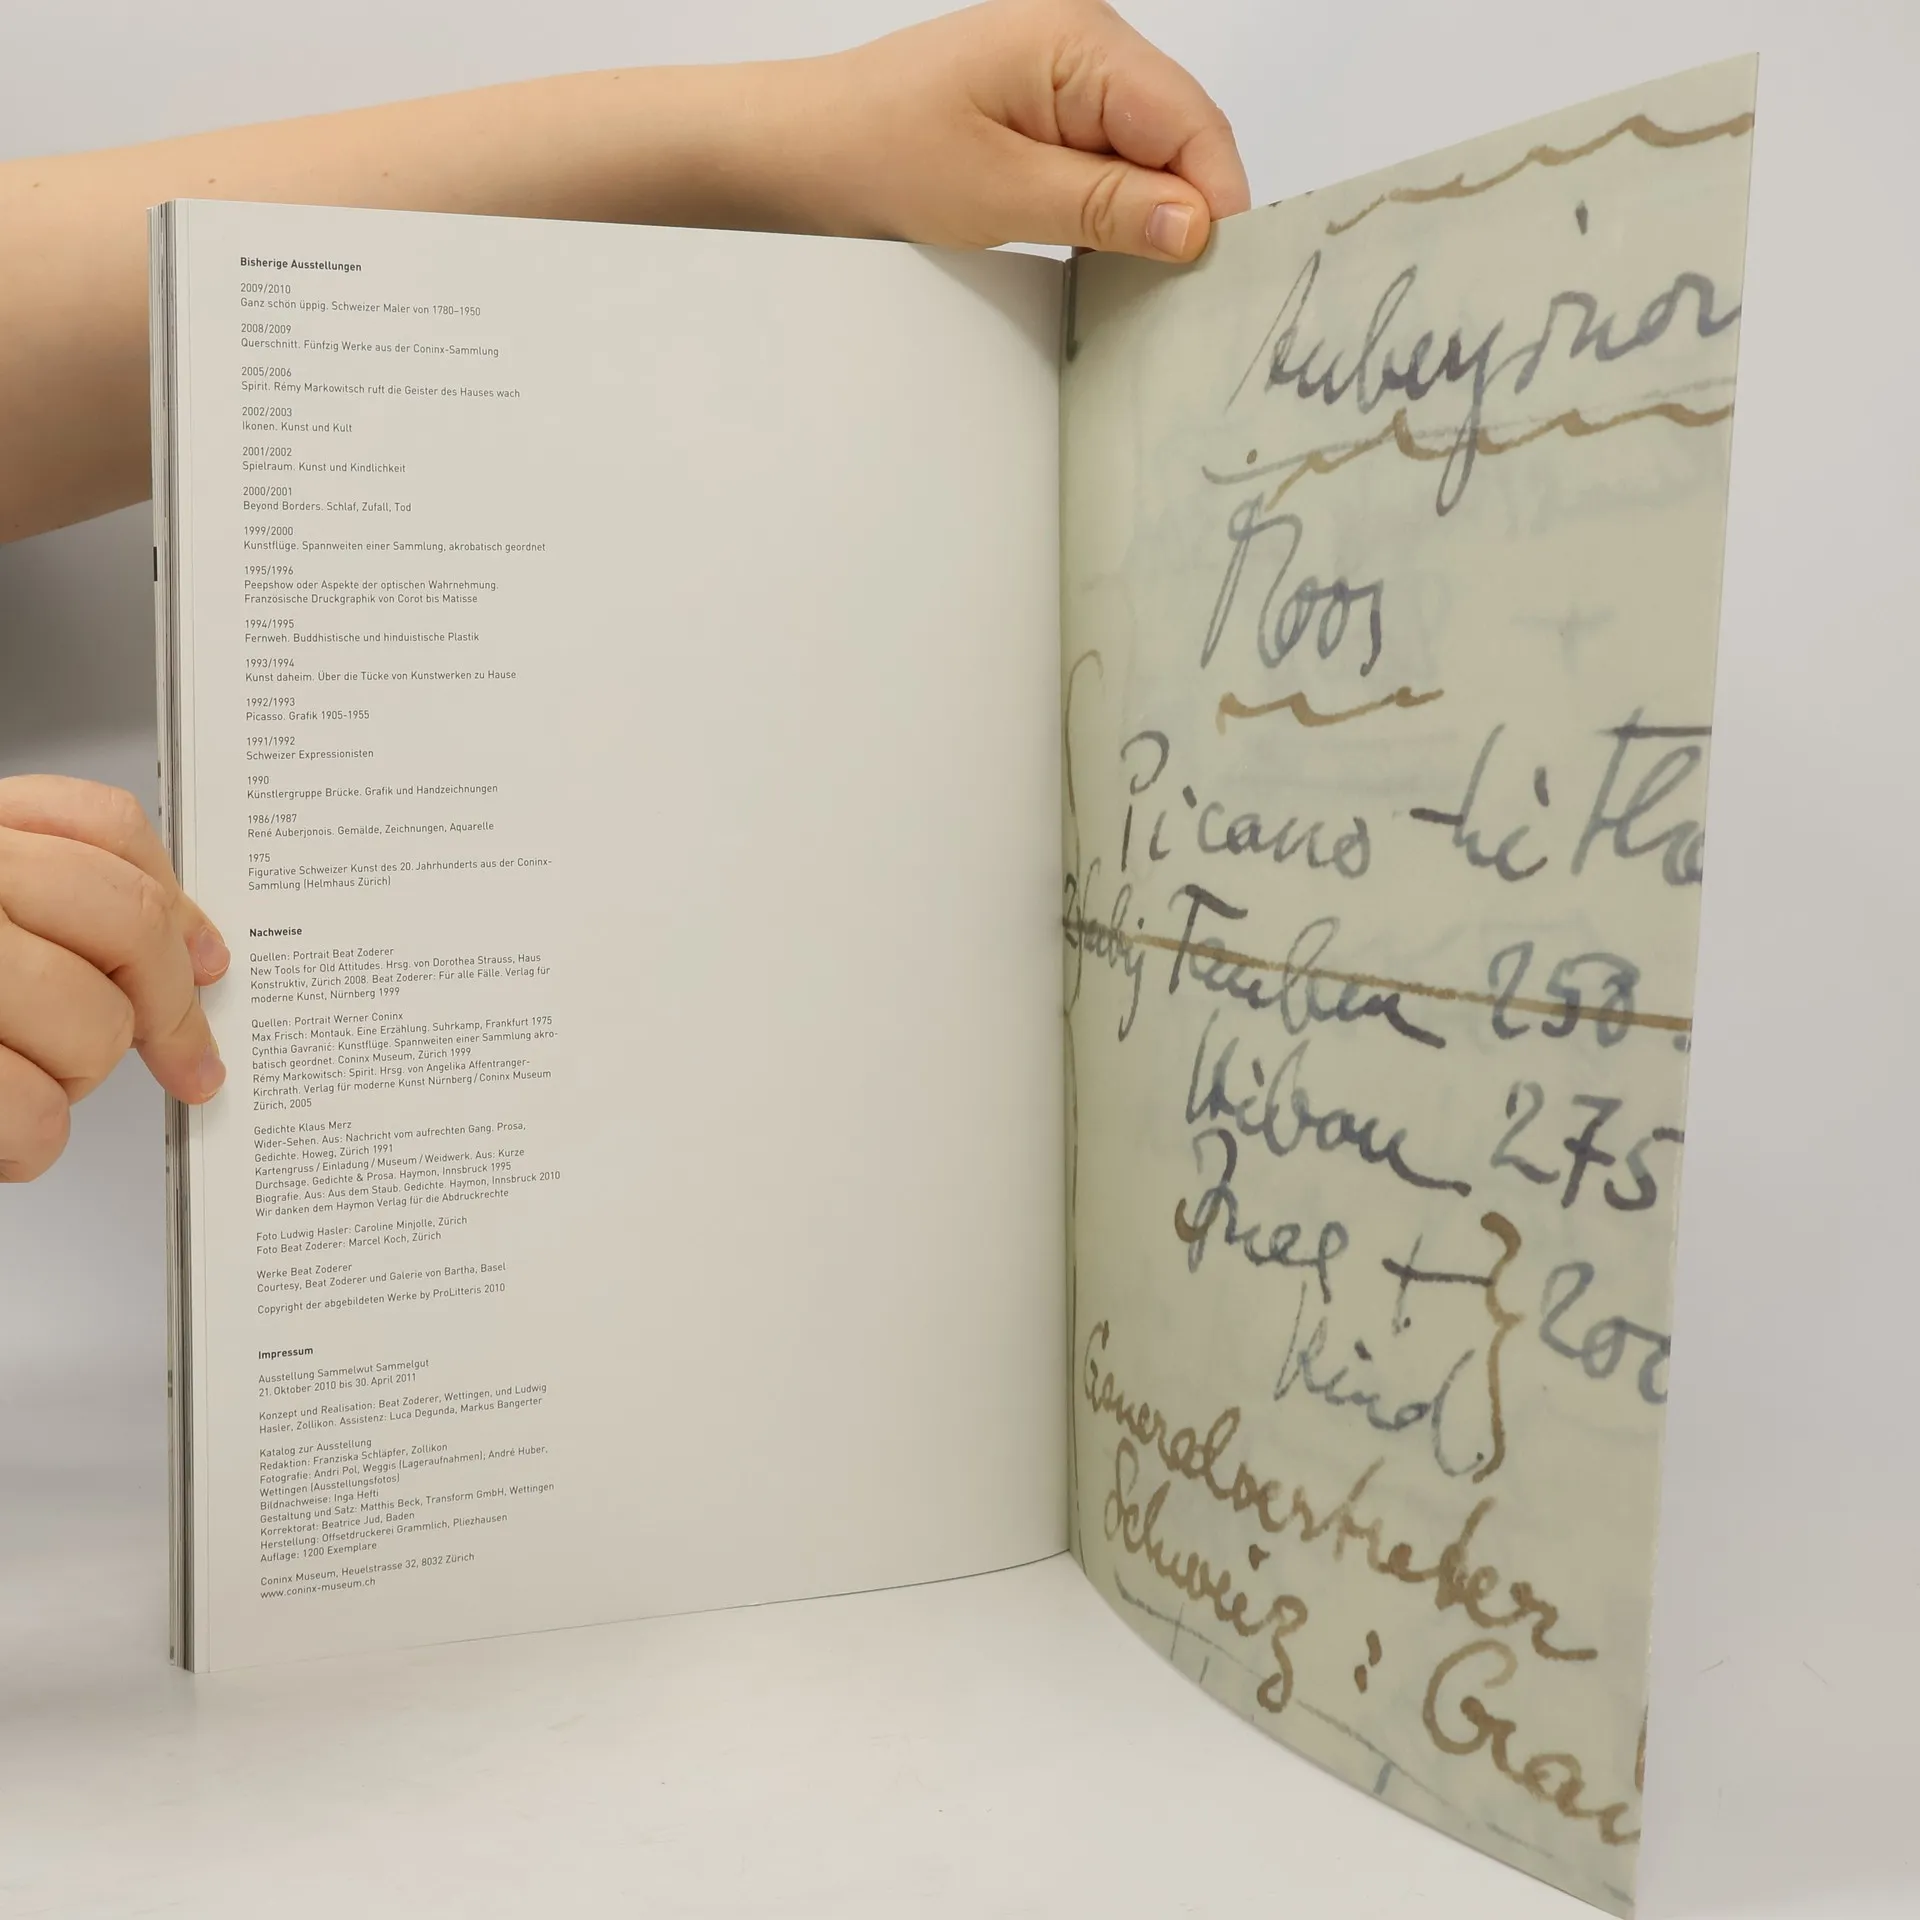 Bisherige Ausstellungen
2009/2010
Ganz schön üppig. Schweizer Maler von 1780–1950
2008/2009
Querschnitt. Fünfzig Werke aus der Coninx-Sammlung
2005/2006
Spirit. Rémy Markowitsch ruft die Geister des Hauses wach
2002/2003
Ikonen. Kunst und Kult
2001/2002
Spielraum. Kunst und Kindlichkeit
2000/2001
Beyond Borders. Schlaf, Zufall, Tod
1999/2000
Kunstflüge. Spannweiten einer Sammlung, akrobatisch geordnet
1995/1996
Peepshow oder Aspekte der optischen Wahrnehmung.
Französische Druckgraphik von Corot bis Matisse
1994/1995
Fernweh. Buddhistische und hinduistische Plastik
1993/1994
Kunst daheim. Über die Tücke von Kunstwerken zu Hause
1992/1993
Picasso. Grafik 1905-1955
1991/1992
Schweizer Expressionisten
1990
Künstlergruppe Brücke. Grafik und Handzeichnungen
1986/1987
René Auberjonois. Gemälde, Zeichnungen, Aquarelle
1975
Figurative Schweizer Kunst des 20. Jahrhunderts aus der Coninx-
Sammlung (Helmhaus Zürich)
Nachweise
Quellen: Portrait Beat Zoderer
New Tools for Old Attitudes. Hrsg. von Dorothea Strauss, Haus
Konstruktiv, Zürich 2008. Beat Zoderer: Für alle Fälle. Verlag für
moderne Kunst, Nürnberg 1999
Quellen: Portrait Werner Coninx
Max Frisch: Montauk. Eine Erzählung. Suhrkamp, Frankfurt 1975
Cynthia Gavranić: Kunstflüge. Spannweiten einer Sammlung akro-
batisch geordnet. Coninx Museum, Zürich 1999
Rémy Markowitsch: Spirit. Hrsg. von Angelika Affentranger-
Kirchrath. Verlag für moderne Kunst Nürnberg / Coninx Museum
Zürich, 2005
Gedichte Klaus Merz
Wider-Sehen. Aus: Nachricht vom aufrechten Gang. Prosa,
Gedichte. Howeg, Zürich 1991
Kartengruss / Einladung / Museum / Weidwerk. Aus: Kurze
Durchsage. Gedichte & Prosa. Haymon, Innsbruck 1995
Biografie. Aus: Aus dem Staub. Gedichte. Haymon, Innsbruck 2010
Wir danken dem Haymon Verlag für die Abdruckrechte
Foto Ludwig Hasler: Caroline Minjolle, Zürich
Foto Beat Zoderer: Marcel Koch, Zürich
Werke Beat Zoderer
Courtesy, Beat Zoderer und Galerie von Bartha, Basel
Copyright der abgebildeten Werke by ProLitteris 2010
Impressum
Ausstellung Sammelwut Sammelgut
21. Oktober 2010 bis 30. April 2011
Konzept und Realisation: Beat Zoderer, Wettingen, und Ludwig
Hasler, Zollikon. Assistenz: Luca Degunda, Markus Bangerter
Katalog zur Ausstellung
Redaktion: Franziska Schläpfer, Zollikon
Fotografie: Andri Pol, Weggis (Lageraufnahmen); André Huber,
Wettingen (Ausstellungsfotos)
Bildnachweise: Inga Hefti
Gestaltung und Satz: Matthis Beck, Transform GmbH, Wettingen
Korrektorat: Beatrice Jud, Baden
Herstellung: Offsetdruckerei Grammlich, Pliezhausen
Auflage: 1200 Exemplare
Coninx Museum, Heuelstrasse 32, 8032 Zürich
www.coninx-museum.ch
Roos
Picasso
Tauben 250
275
+ 200
Kind
Generalvertreter
Schweiz :